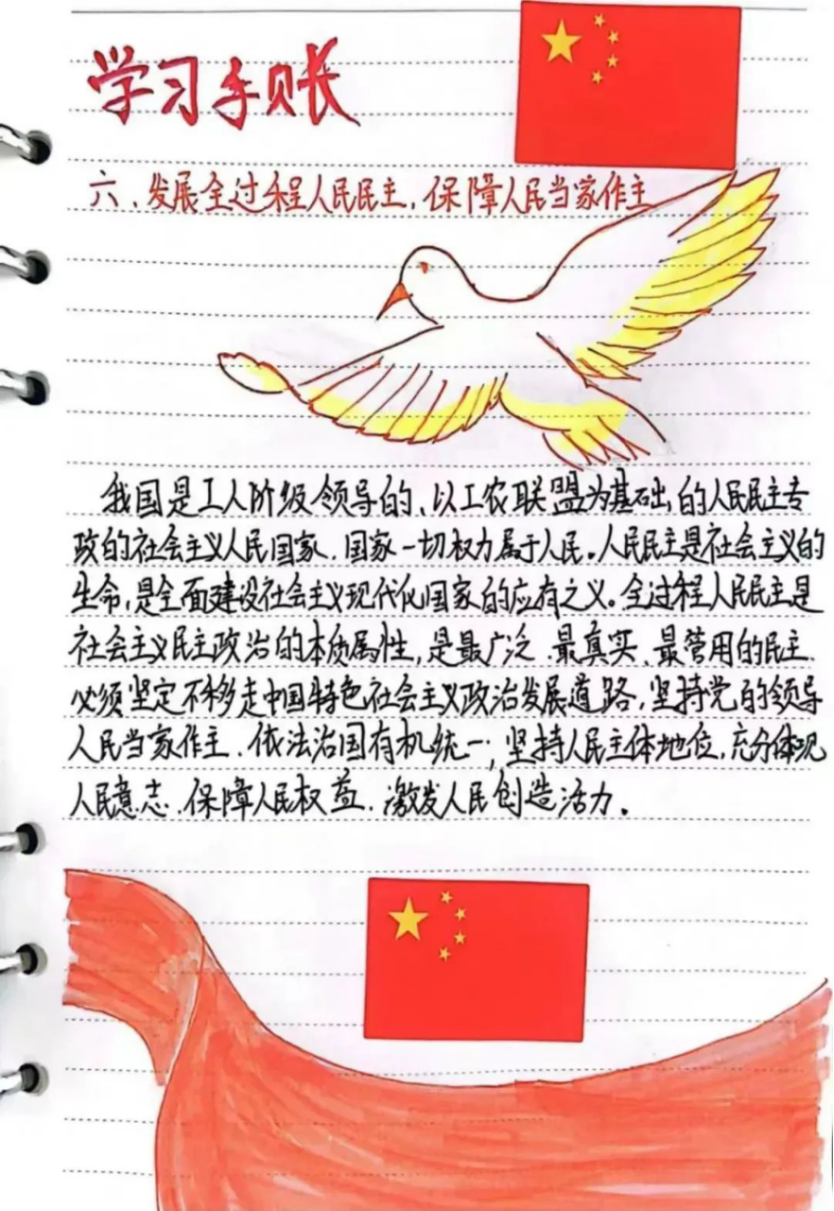 学习手账
六、发展全过程人民民主，保障人民当家作主
我国是工人阶级领导的、以工农联盟为基础的人民民主专
政的社会主义人民国家，国家一切权力属于人民。人民民主是社会主义的
生命，是全面建设社会主义现代化国家的应有之义。全过程人民民主是
社会主义民主政治的本质属性，是最广泛、最真实、最管用的民主
必须坚定不移走中国特色社会主义政治发展道路，坚持党的领导
人民当家作主、依法治国有机统一，坚持人民主体地位，充分体现
人民意志、保障人民权益、激发人民创造活力。